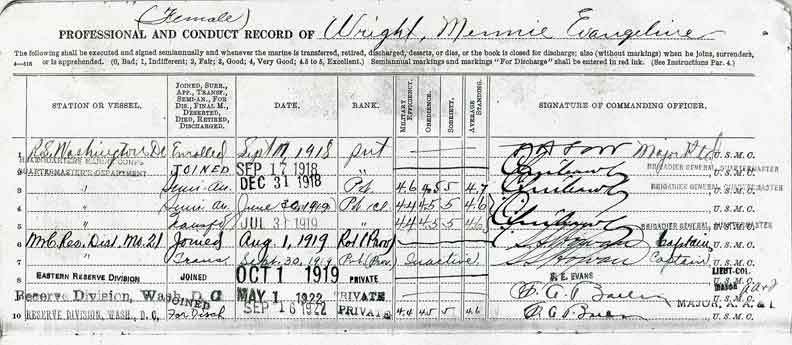 (Female)
PROFESSIONAL AND CONDUCT RECORD OF Wright, Minnie Evangeline
The following shall be executed and signed semiannually and whenever the marine is transferred, retired, discharged, deserts, or dies, or the book is closed for discharge; also (without markings) when he joins, surrenders,
or is apprehended. (0, Bad; 1, Indifferent; 2, Fair; 3, Good; 4, Very Good; 4.5 to 5, Excellent.) Semiannual markings and markings "For Discharge" shall be entered in red ink. (See Instructions Par. 4.)
STATION OR VESSEL. JOINED, SURR., APP., TRANSF., SEMI-AN., FOR DIS., FINAL M., DESERTED, DIED, RETIRED, DISCHARGED. DATE. RANK. MILITARY EFFICIENCY. OBEDIENCE. SOBRIETY. AVERAGE STANDING. SIGNATURE OF COMMANDING OFFICER.
1 Washington DC Enrolled Sept 17 1918 pvt Major U.S.M.C.
2 HEADQUARTERS MARINE CORPS QUARTERMASTER'S DEPARTMENT JOINED SEP 17 1918 " BRIGADIER GENERAL QUARTERMASTER U.S.M.C.
3 " Semi An. DEC 31 1918 Pvt 4.6 4.5 5 4.7 BRIGADIER GENERAL U.S.M.C.
4 " Semi An June 30, 1919 Pvt 1 cl 4.4 4.5 5 4.6 BRIGADIER GENERAL U.S.M.C.
5 " Transf'd JUL 31 1919 " 4.4 4.5 5 4.6 BRIGADIER GENERAL U.S.M.C.
6 Res. Dist. No. 21 Joined Aug 1, 1919 Captain U.S.M.C.
7 " Trans. Sept. 30, 1919 Pvt (Prov.) Inactive Captain U.S.M.C.
8 EASTERN RESERVE DIVISION JOINED OCT 1 1919 PRIVATE F. E. EVANS LIEUT-COL. U.S.M.C.
9 Reserve Division, Wash, D C JOINED MAY 1 1922 PRIVATE U.S.M.C.
10 RESERVE DIVISION, WASH., D. C. For Disch SEP 16 1922 PRIVATE 4.4 4.5 5 4.6 MAJOR, A. A. & I. U.S.M.C.